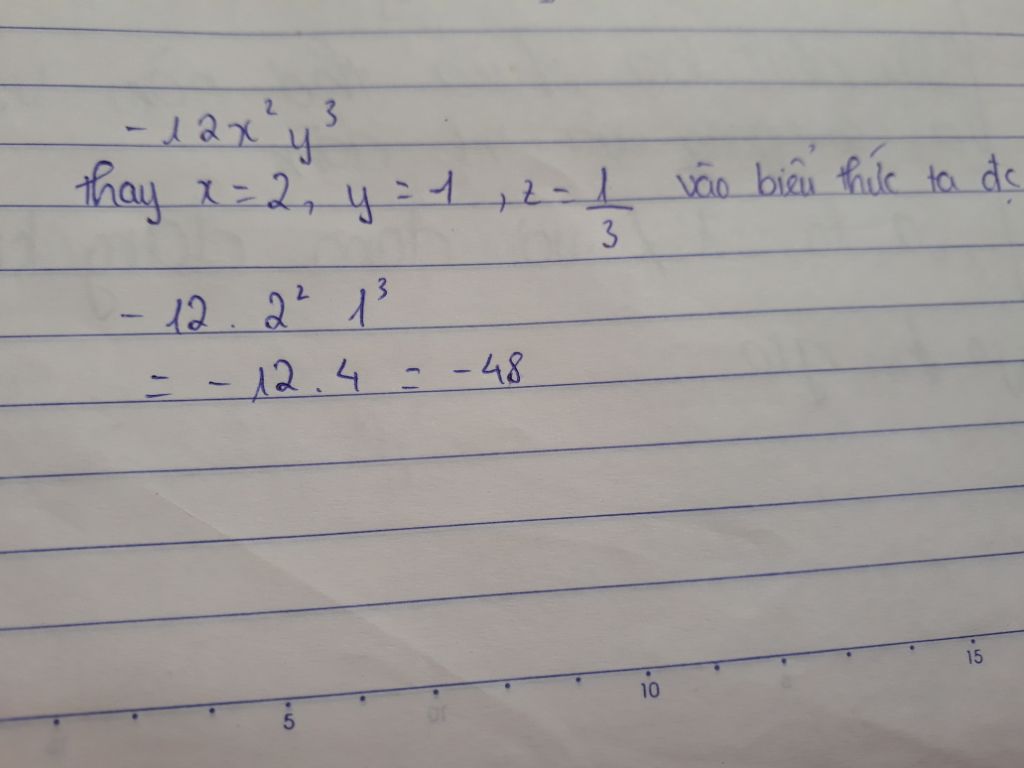 -12x²y³
thay x=2, y=1, z=1/3 vào biểu thức ta đc
-12. 2² 1³
= -12.4 = -48
5 10 15